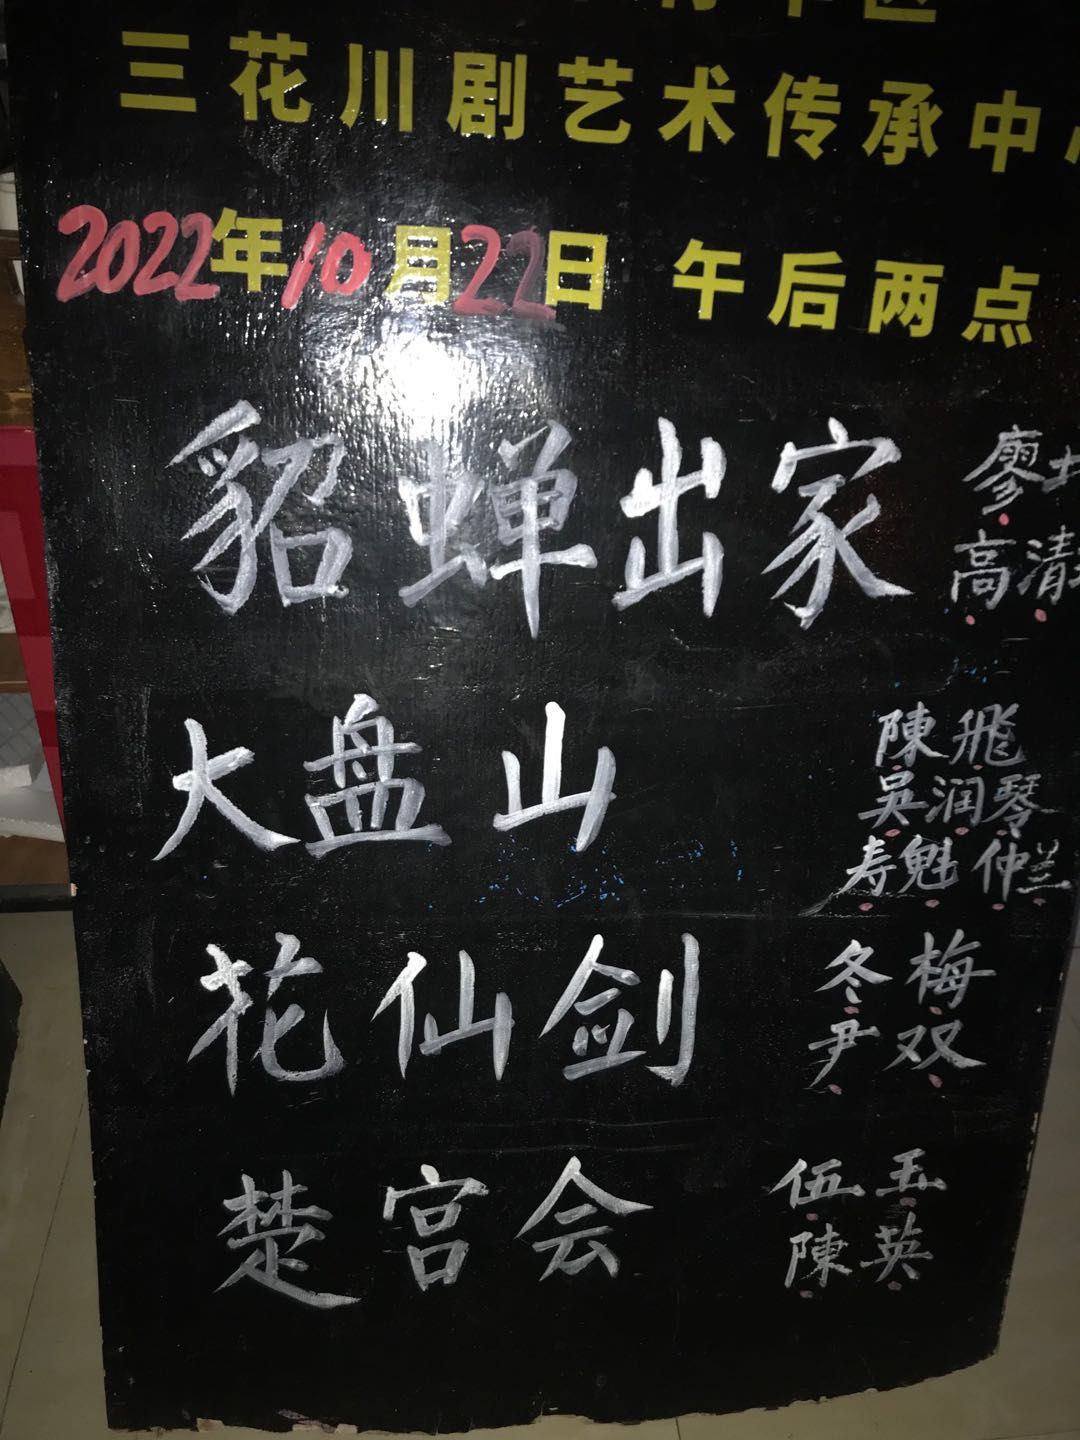 三花川剧艺术传承中
2022年10月22日 午后两点
貂蝉出家 廖
高清
大盘山 陳飛
吳润琴
寿魁 仲兰
花仙剑 冬梅
尹双
楚宫会 伍玉
陳英